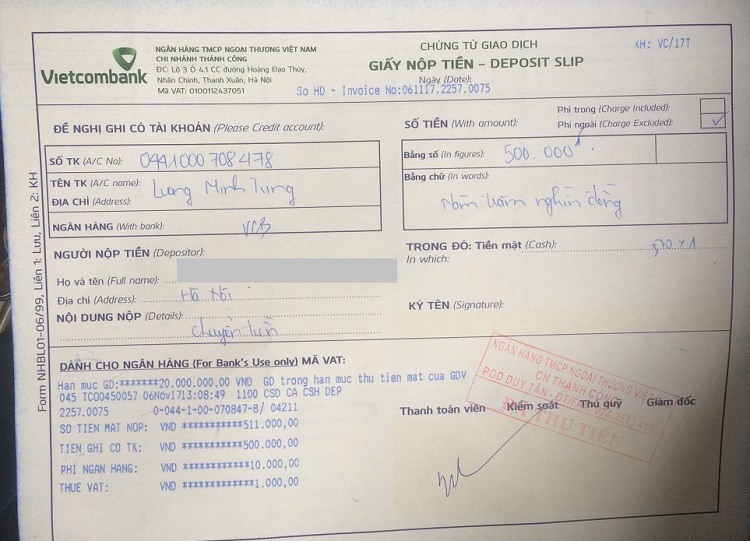 Vietcombank
NGÂN HÀNG TMCP NGOẠI THƯƠNG VIỆT NAM
CHI NHÁNH THÀNH CÔNG
ĐC: Lô 3 Ô 4.1 CC đường Hoàng Đạo Thúy,
Nhân Chính, Thanh Xuân, Hà Nội
Mã VAT: 0100112437051
CHỨNG TỪ GIAO DỊCH
GIẤY NỘP TIỀN - DEPOSIT SLIP
Ngày (Date):
KH: VC/17T
So HD - Invoice No:061117.2257.0075
ĐỀ NGHỊ GHI CÓ TÀI KHOẢN (Please Credit account):
SỐ TK (A/C No): 0441000708478
TÊN TK (A/C name): Lương Minh Tùng
ĐỊA CHỈ (Address):
NGÂN HÀNG (With bank): VCB
SỐ TIỀN (With amount):
Phí trong (Charge Included):
Phí ngoài (Charge Excluded): ✓
Bằng số (In figures): 500.000đ
Bằng chữ (In words):
Năm trăm nghìn đồng
NGƯỜI NỘP TIỀN (Depositor):
Họ và tên (Full name):
Địa chỉ (Address): Hà Nội
NỘI DUNG NỘP (Details):
chuyển tiền
TRONG ĐÓ: Tiền mặt (Cash):
In which:
KÝ TÊN (Signature):
Form NHBL01-06/99, Liên 1: Lưu, Liên 2: KH
DÀNH CHO NGÂN HÀNG (For Bank's Use only) MÃ VAT:
Han muc GD:*******20.000.000,00 VND GD trong han muc thu tien mat cua GDV
045 TCO0450057 06Nov1713:08:49 1100 CSD CA CSH DEP
2257.0075 0-044-1-00-070847-8/ 04211
SO TIEN MAT NOP: VND ***********511.000,00
TIEN GHI CO TK: VND ***********500.000,00
PHI NGAN HANG: VND ************10.000,00
THUE VAT: VND *************1.000,00
Thanh toán viên Kiểm soát Thủ quỹ Giám đốc
NGÂN HÀNG TMCP NGOẠI THƯƠNG VIỆT
CN THÀNH CÔNG
PGD DUY TÂN
ĐÃ THU TIỀN